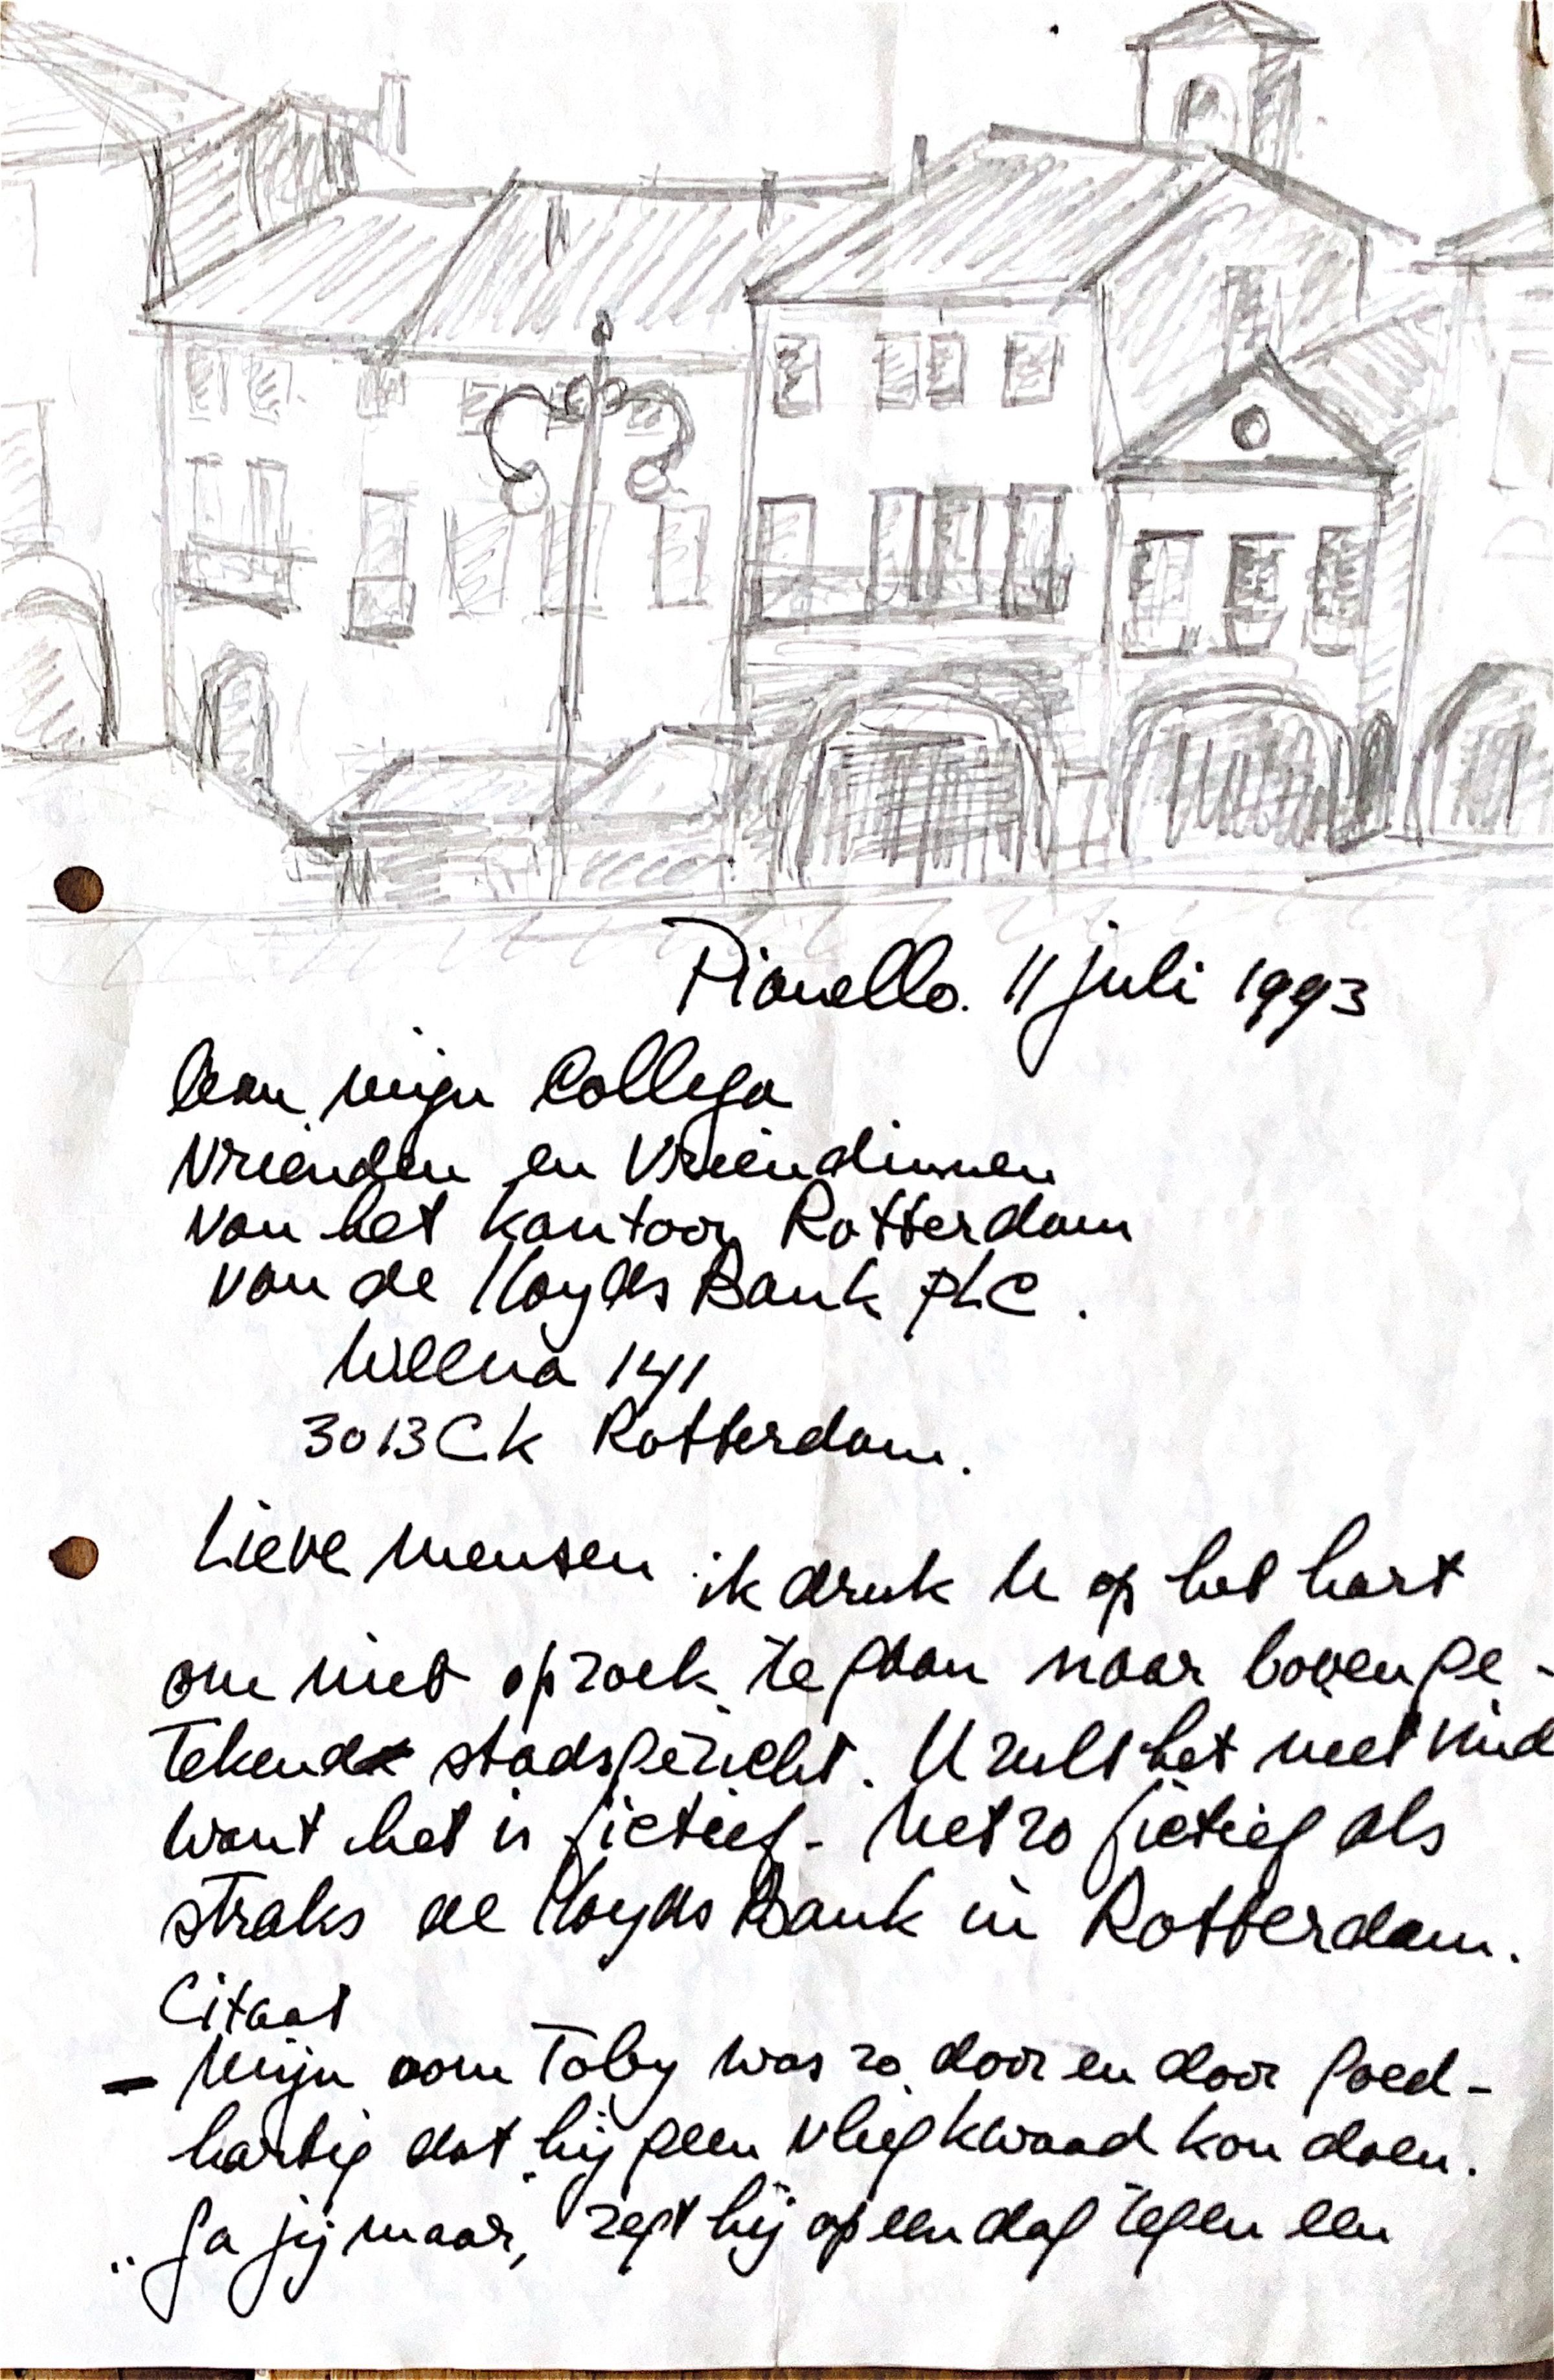 Pianello. 11 juli 1993
Aan mijn Collega
Vrienden en Vriendinnen
van het kantoor Rotterdam
van de Lloyds Bank PLC.
Weena 141
3013CK Rotterdam.
Lieve mensen ik druk U op het hart
om niet op zoek te gaan naar bovenge-
tekend stadsgezicht. U zult het niet vind
want het is fictief - net zo fictief als
straks de Lloyds Bank in Rotterdam.
Citaat
- Mijn oom Toby was zo door en door goed-
hartig dat hij geen vlieg kwaad kon doen.
„Ga jij maar, zegt hij op een dag tegen een